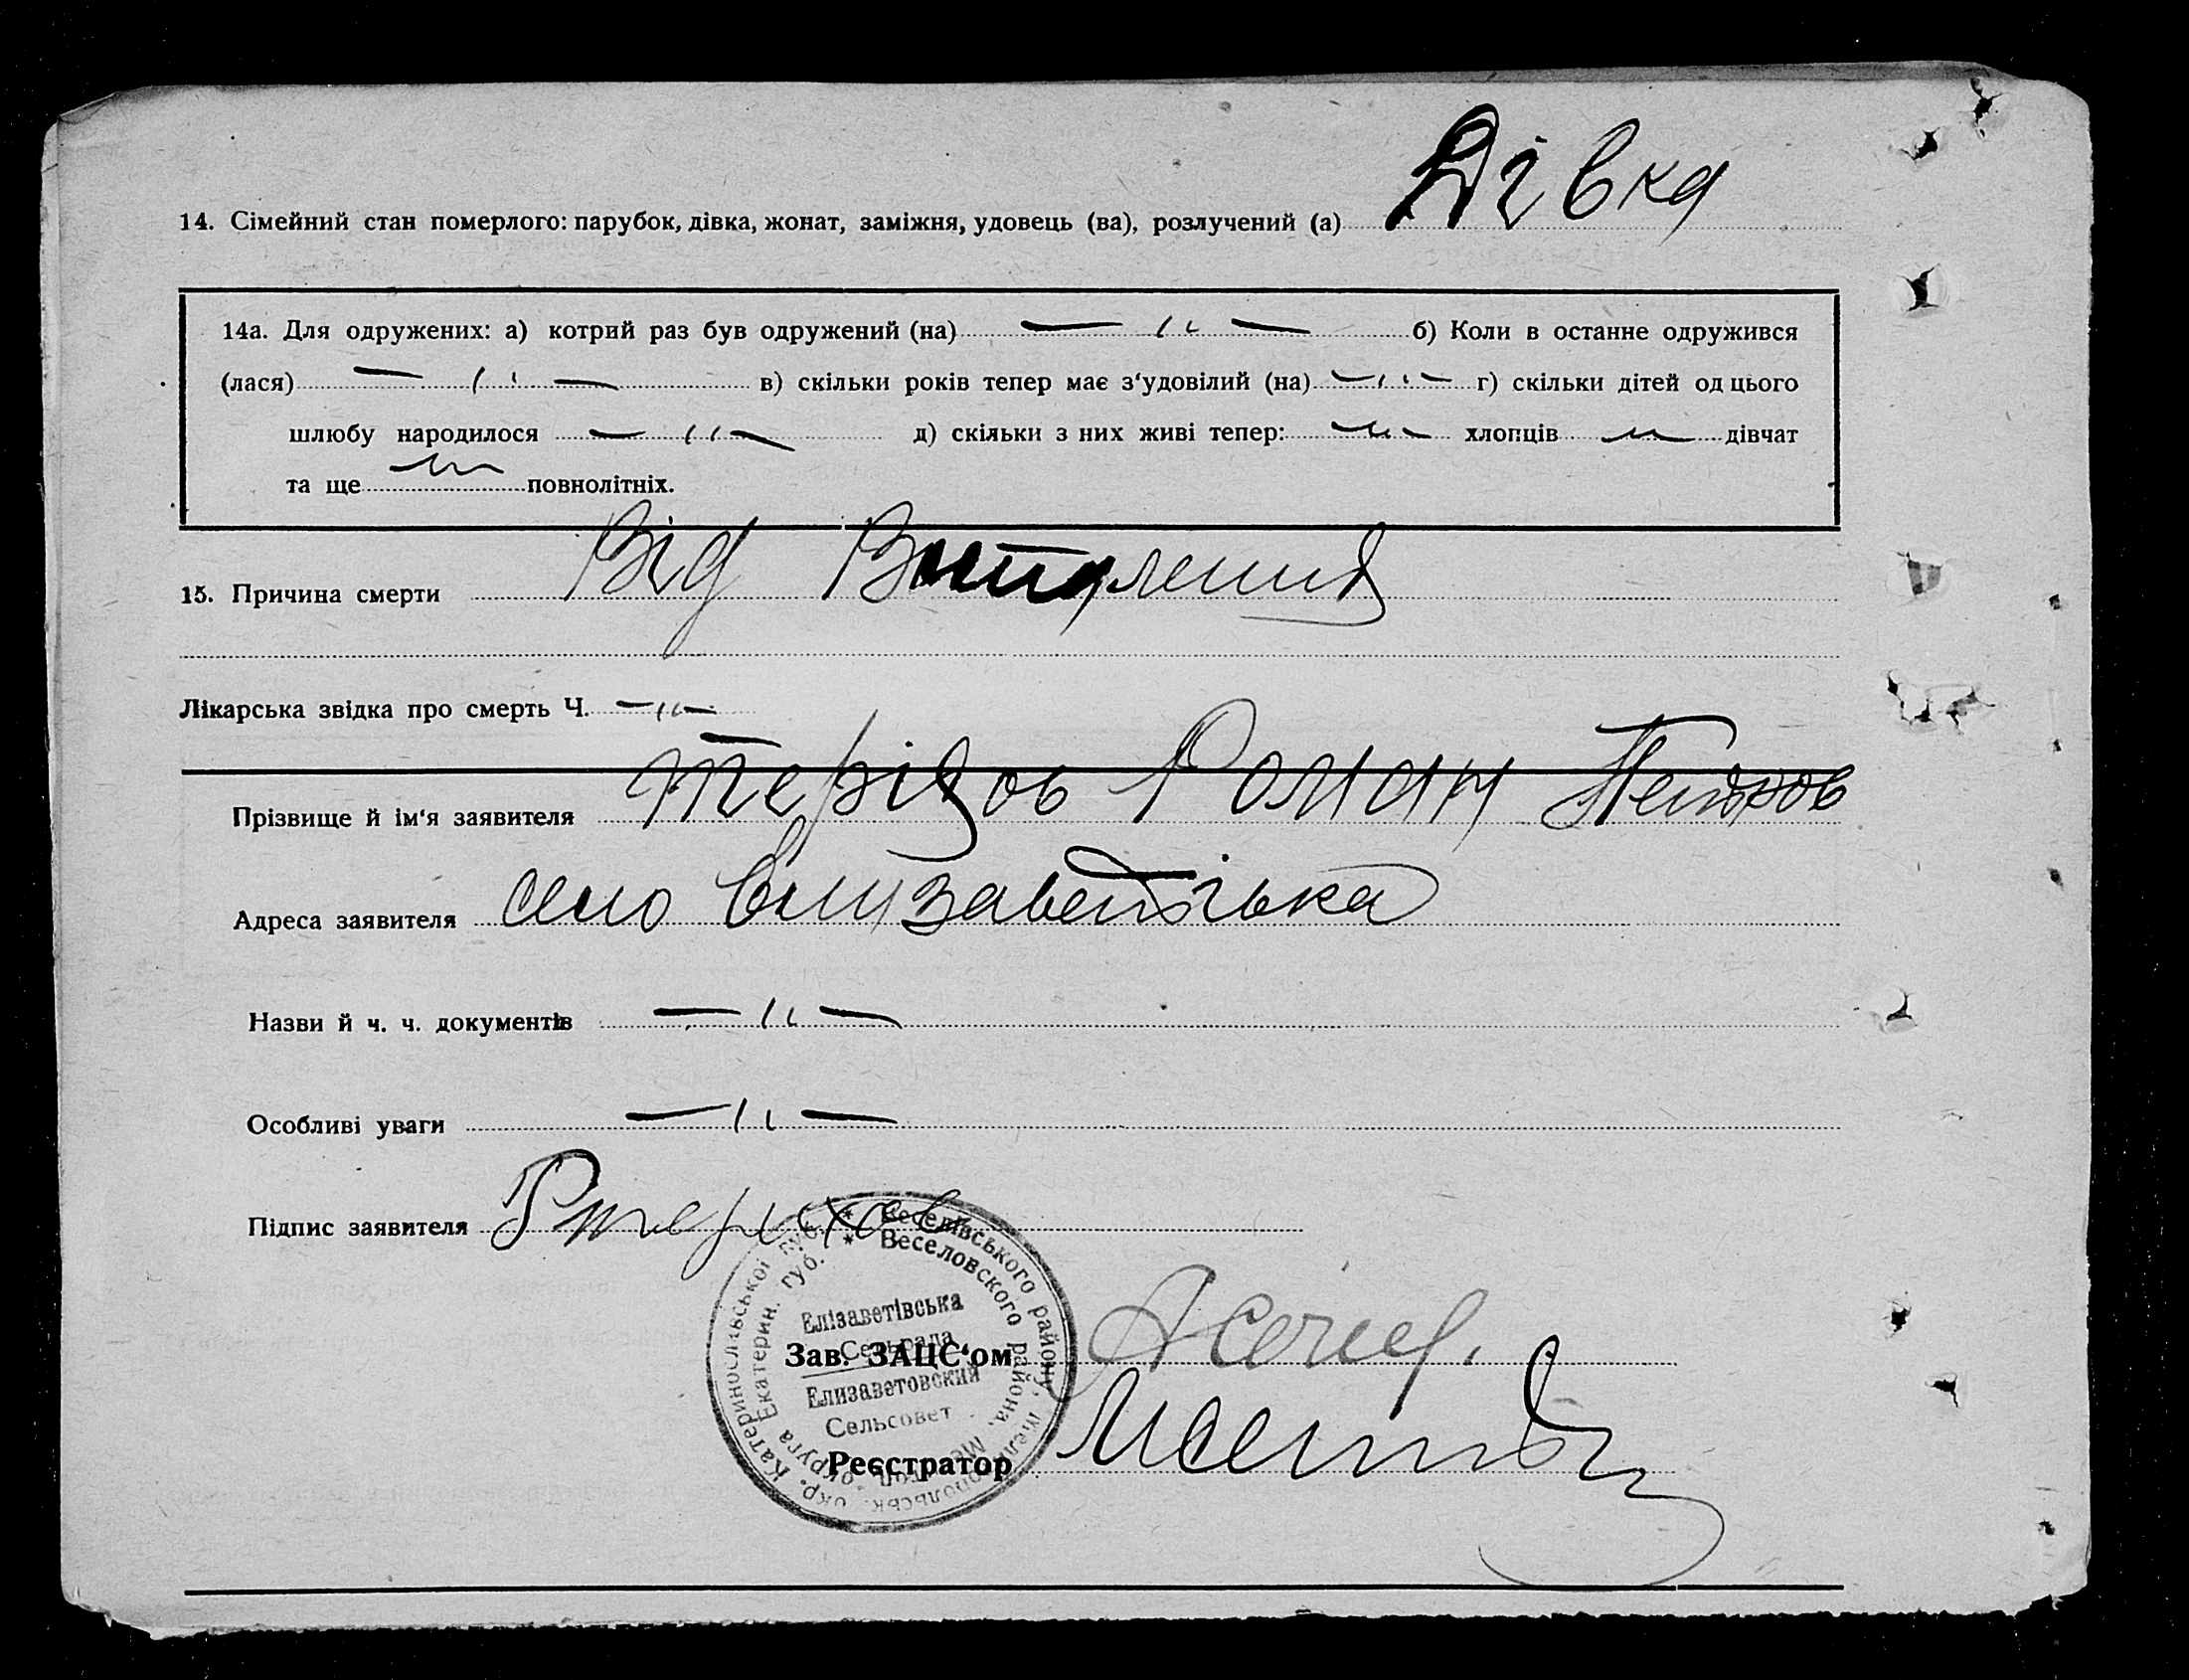 14. Сімейний стан померлого: парубок, дівка, жонат, заміжня, удовець (ва), розлучений (а) Дівка
14а. Для одружених: а) котрий раз був одружений (на) — „ — б) Коли в останне одружився
(лася) — „ — в) скільки років тепер має з‘удовілий (на) — „ — г) скільки дітей од цього
шлюбу народилося — „ — д) скільки з них живі тепер: — „ — хлопців — „ — дівчат
та ще — „ — повнолітніх.
15. Причина смерти Від Воспаления
Лікарська звідка про смерть Ч. — „ —
Прізвище й ім‘я заявителя Роман Петров
Адреса заявителя село
Назви й ч. ч. документів — „ —
Особливі уваги — „ —
Підпис заявителя
* Веселівського району, Мелітопольськ. окр. Катеринославської губ.
* Веселовского района, Мелитоп. округа Екатерин. губ.
Елізаветівська
Сельрада
Елизаветовский
Сельсовет
Зав. ЗАЦС‘ом
Реєстратор